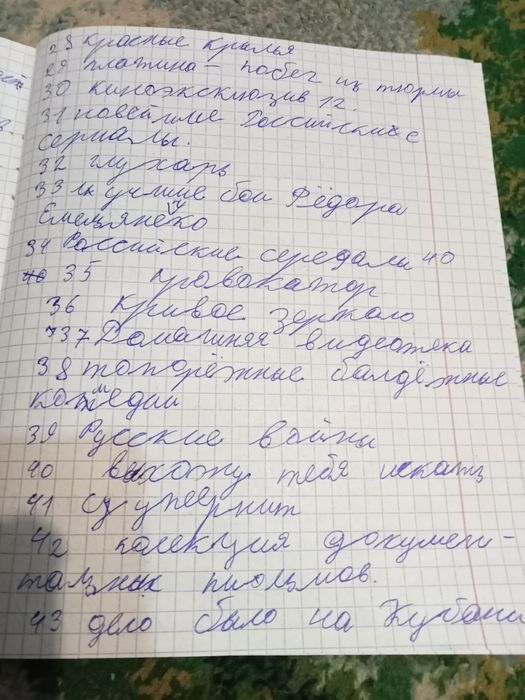 28 красные Крылья
29 платина – побег из тюрмы
30 киноэксклюзив 12.
31 новейшие Российские с
сериалы.
32 глухарь
33 лучшие бои Фёдора
Емельянеко
34 Российские середали 40
35 провокатор
36 Кривое зеркало
37 Домашняя видеотека
38 молодёжные балдёжные
комедии
39 Русские войны
40 выхожу тебя искать
41 супернит
42 колекция докумен-
тальных письмов.
43 дело было на Кубани